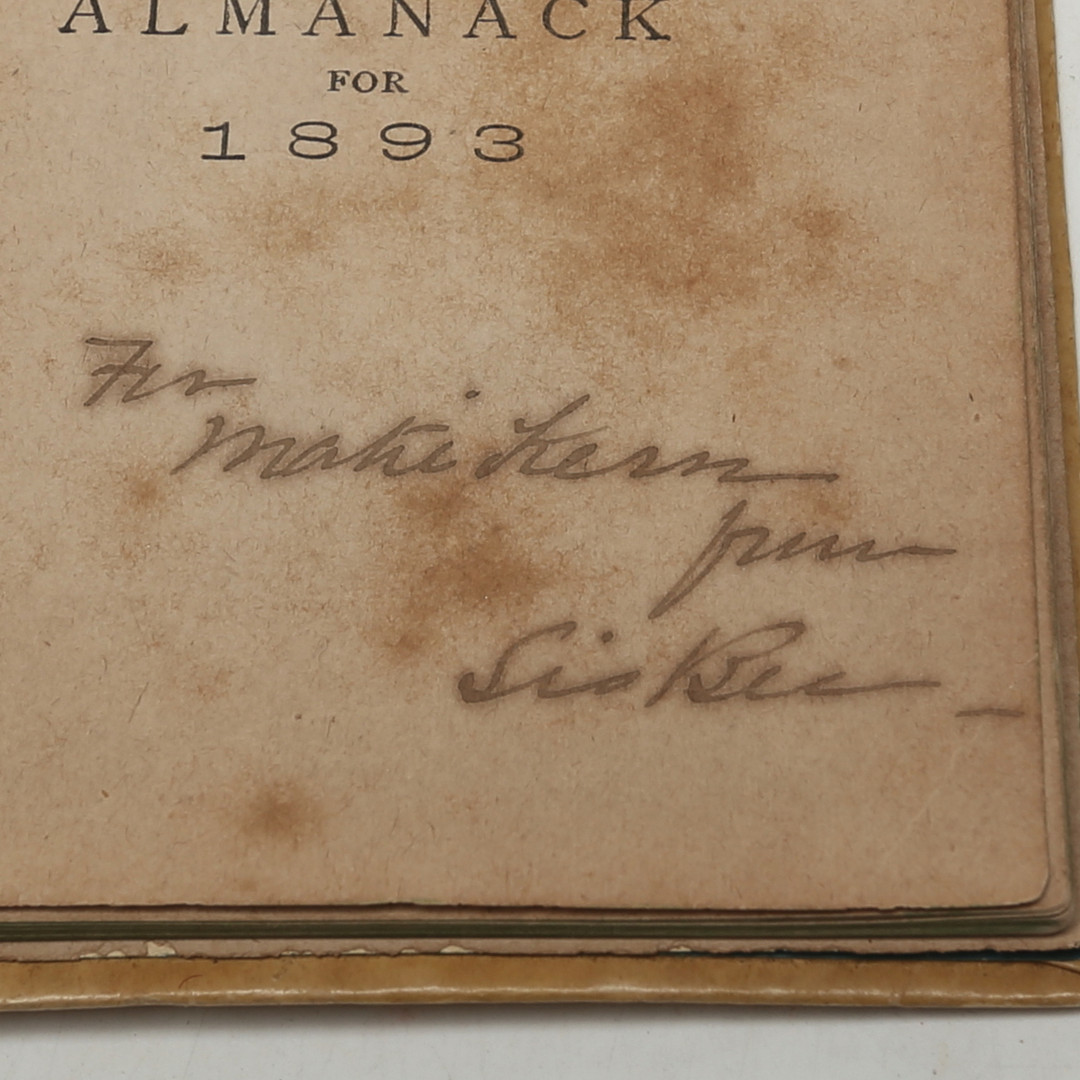 ALMANACK
FOR
1893
For
Makie Kern
from
Sis Bee –